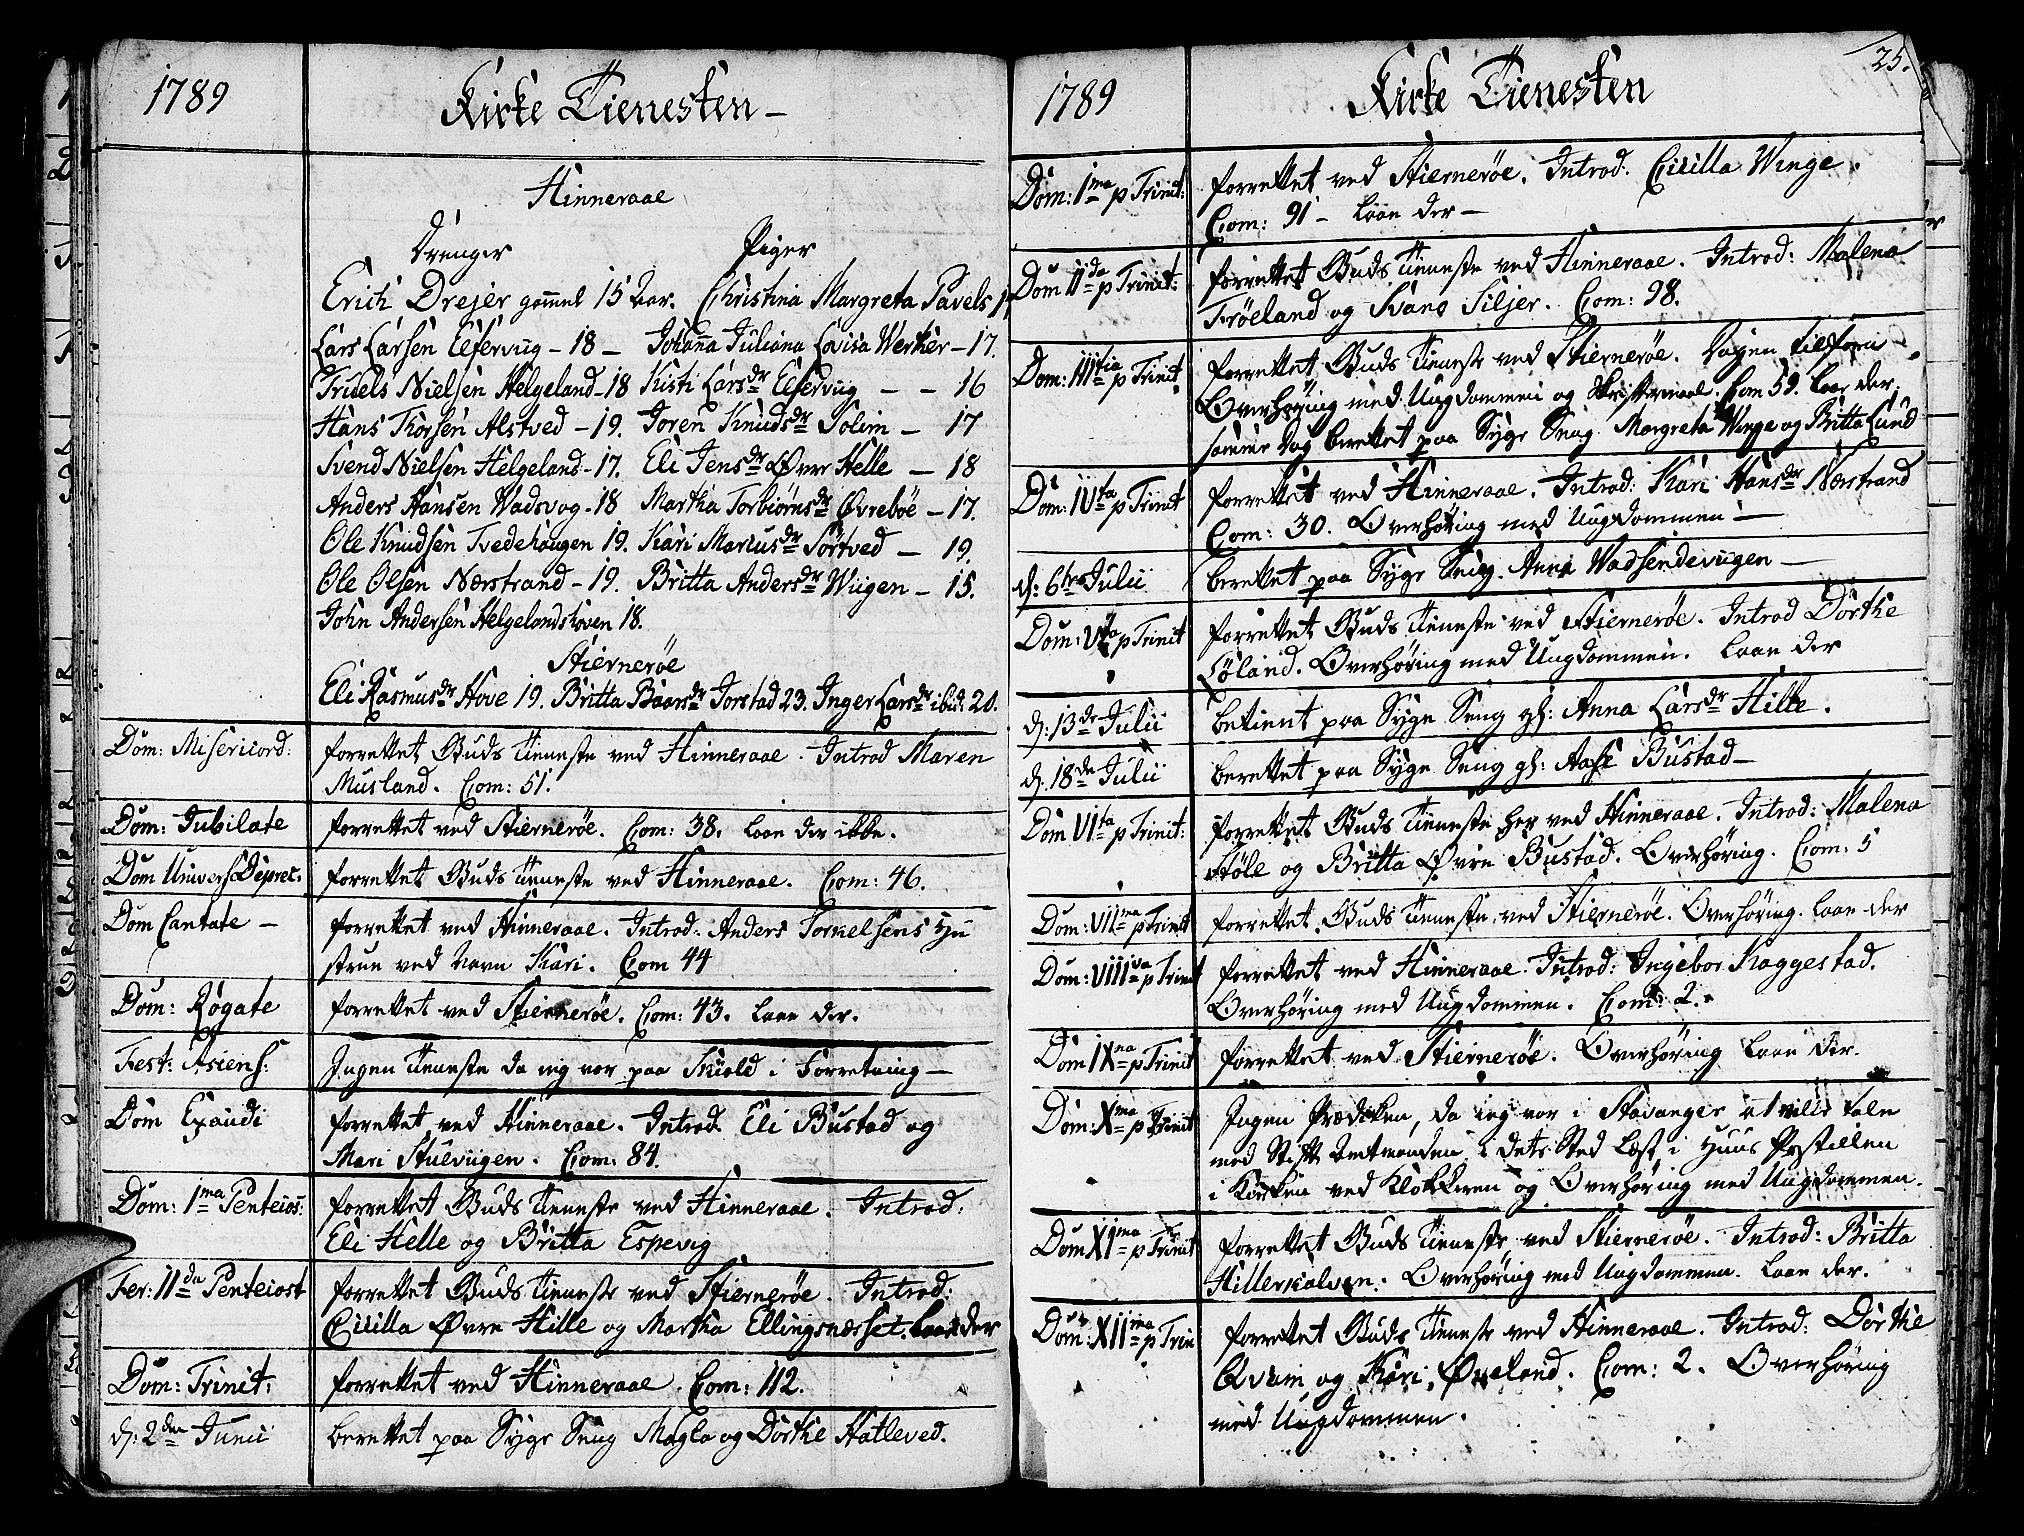 1789 Kirke Tienesten –
Hinneraae
Drenger Piger
Erich Drejer gammel 15 Aar. Christina Margreta Pavels
Lars Larsen Elfervug – 18 – Johanna Juliana Lovisa Werker – 17.
Troels Nielsen Helgeland – 18 Kisti Larsdr Elfervug – – 16
Hans Thorsen Alstved – 19. Joren Knudsdr Solim – 17
Svend Nielsen Helgeland – 17. Eli Jensdr Øvre Helle – 18
Anders Hansen Vadsvog – 18 Martha Torbiørnsdr Øvrebøe – 17.
Ole Knudsen Tvedehaugen 19. Kari Marcusdr Sørtved – 19.
Ole Olsen Nærstrand – 19. Britta Andersdr Wiigen – 15.
John Andersen Helgelandshoven 18.
Stiernerøe
Eli Rasmusdr Hove 19. Britta Baarsdr Jorstad 23. Inger Larsdr ibid: 20.
Dom: Misericord: forrettet Guds Tieneste ved Hinneraae. Introd Maren
Musland. Com: 51.
Dom: Jubilate forrettet ved Stiernerøe. Com: 38. laae der ikke.
Dom Univers Depret: forrettet Guds Tieneste ved Hinneraae. Com: 46.
Dom Cantate – forrettet ved Hinneraae. Introd: Anders Torkelsens Hu
strue ved Navn Kari. Com 44
Dom: Rogate forrettet ved Stiernerøe. Com: 43. laae der.
Fest: Asiens: Ingen Tieneste da ieg var paa Skiold i Forretning –
Dom Exaudi forrettet ved Hinneraae. Introd. Eli Bustad og
Mari Stulviigen. Com: 84.
Dom: 1ma Penteios: forrettet Guds Tieneste ved Hinneraae. Introd:
Eli Helle og Britta Espevig
Fer: IIda Penteiost forrettet Guds Tieneste ved Stiernerøe. Introd:
Cicilla Øvre Hille og Martha Ellingsnæsset. laae der
Dom: Trinit: forrettet ved Hinneraae. Com: 112.
d: 2den Junii berettet paa Syge Seng Magla og Dorthe Hatleved.
25.
1789 Kirke Tienesten
Dom: 1ma p Trinit: forrettet ved Stiernerøe. Introd: Cicilla Winge.
Com: 91 – laae der –
Dom IIda p Trinit: forrettet Guds Tieneste ved Hinneraae. Introd: Malena
Frøeland og Siljer. Com: 98.
Dom: IIItia p Trinit forrettet Guds Tieneste ved Stiernerøe. Dagen tilforn
Overhøring med Ungdommen og Skriftemaal. Com 59. laae der.
samme Dag berettet paa Syge Seng Margreta Winge og Britta Lund
Dom: IVta p Trinit forrettet ved Hinneraae. Introd: Kari Hansdr Nærstrand
Com: 30. Overhøring med Ungdommen –
d: 6te Julii berettet paa Syge Seng. Anna Vadsendeviigen –
Dom: Vta p Trinit forrettet Guds Tieneste ved Stiernerøe. Introd Dorthe
Løland. Overhøring med Ungdommen. laae der
d: 13de Julii betient paa Syge Seng gl: Anna Larsdr Hille.
d. 18de Julii berettet paa Syge Seng gl: Aase Bustad –
Dom VIta p Trinit: forrettet Guds Tieneste her ved Hinneraae. Introd: Malena
Høle og Britta Øvre Bustad. Overhøring. Com: 5
Dom: VIIma p Trinit forrettet Guds Tieneste ved Stiernerøe. Overhøring. laae der
Dom: VIIIva p Trinit forrettet ved Hinneraae. Introd: Ingebor Koggestad.
Overhøring med Ungdommen. Com: 2.
Dom IXna p Trinit forrettet ved Stiernerøe. Overhøring laae der.
Dom: Xma p Trinit Ingen Prædiken, da ieg var i Stavanger at tale
med Stift Amtmanden, i dets Sted læst i Huus Postillen
i Kirken ved Klokkeren og Overhøring med Ungdommen.
Dom XIma p Trinit forrettet Guds Tieneste ved Stiernerøe. Introd: Britta
Hillerkalven. Overhøring med Ungdommen. laae der.
Dom: XIIma p Trin forrettet Guds Tieneste ved Hinneraae. Introd: Dorthe
Qvam og Kari Øveland. Com: 2. Overhøring
med Ungdommen.